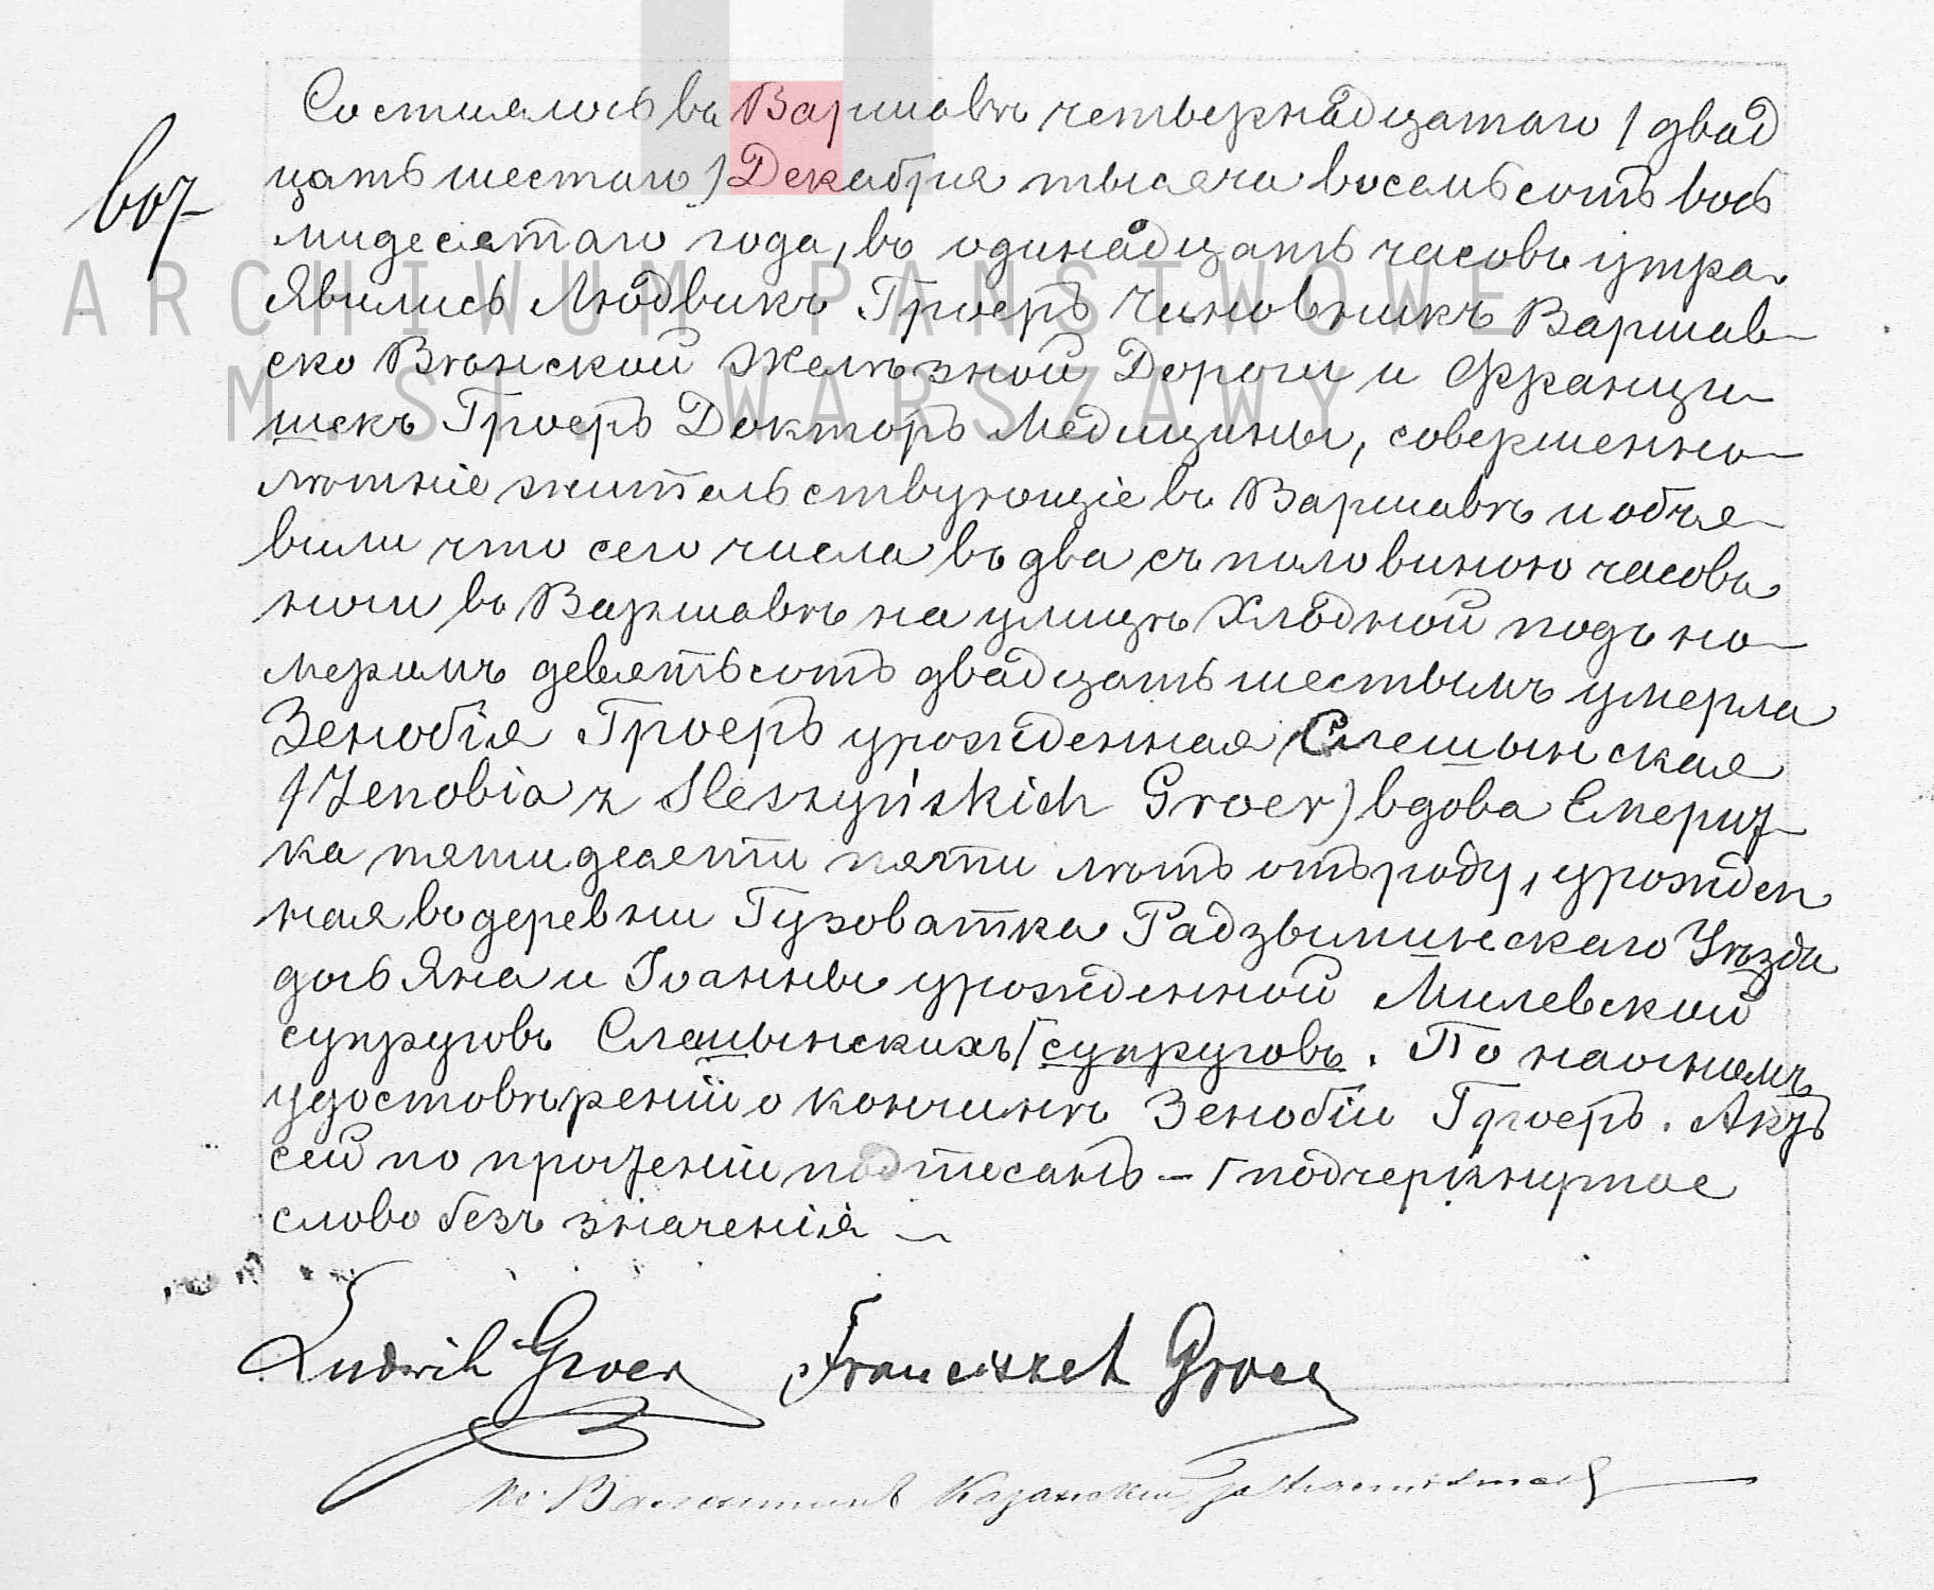 Состоялось въ Варшавѣ четвернадцатаго / двад
цать шестаго) Декабря тысяча восемьсотъ вось
мидесятаго года, въ одинадцать часовъ утра.
607
Явились Людвикъ Гроеръ Чиновникъ Варшав-
ско Вѣнской Желѣзной Дороги и Франци-
шекъ Гроеръ Докторъ Медицины, совершенно-
лѣтніе жительствующіе въ Варшавѣ и объя-
вили что сего числа въ два съ половиною часовъ
ночи въ Варшавѣ на улицѣ Хлодной подъ но-
меромъ девятьсотъ двадцать шестымъ умерла
Зенобія Гроеръ урожденная Слешынская
/Zenobia z Sleszyńskich Groer) вдова Емери-
ка пятидесяти пяти лѣтъ отъ роду, урожден
ная въ деревни Гузоватка Радзыминскаго Уѣзда
дочь Яна и Іоанны урожденной Милевской
супруговъ Слешынскихъ / супруговъ. По наочномъ
удостовѣреніи о кончинѣ Зенобіи Гроеръ. Актъ
сей по прочтеніи подписанъ - / подчеркнутое
слово безъ значенія -
Ludwik Groer Franciszek Groer
ARCHIWUM PAŃSTWOWE
M. ST. WARSZAWY